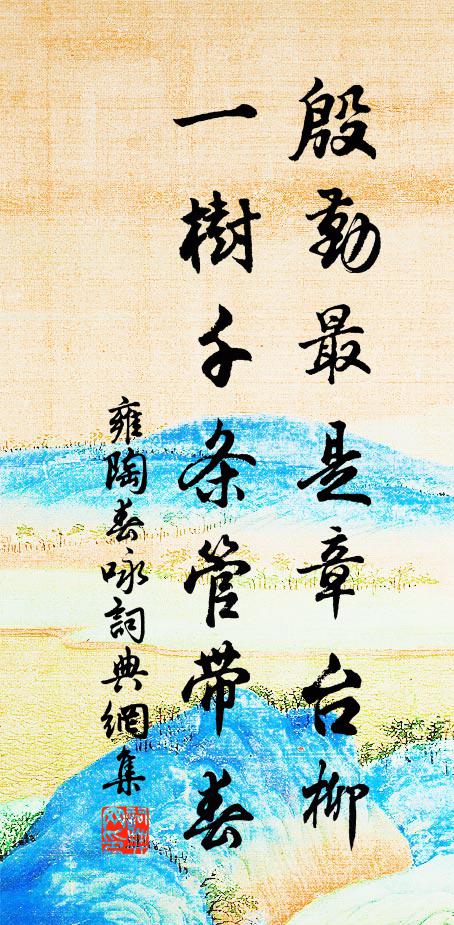 殷勤最是章台柳
一樹千条管带春
雍陶春咏詞典網集